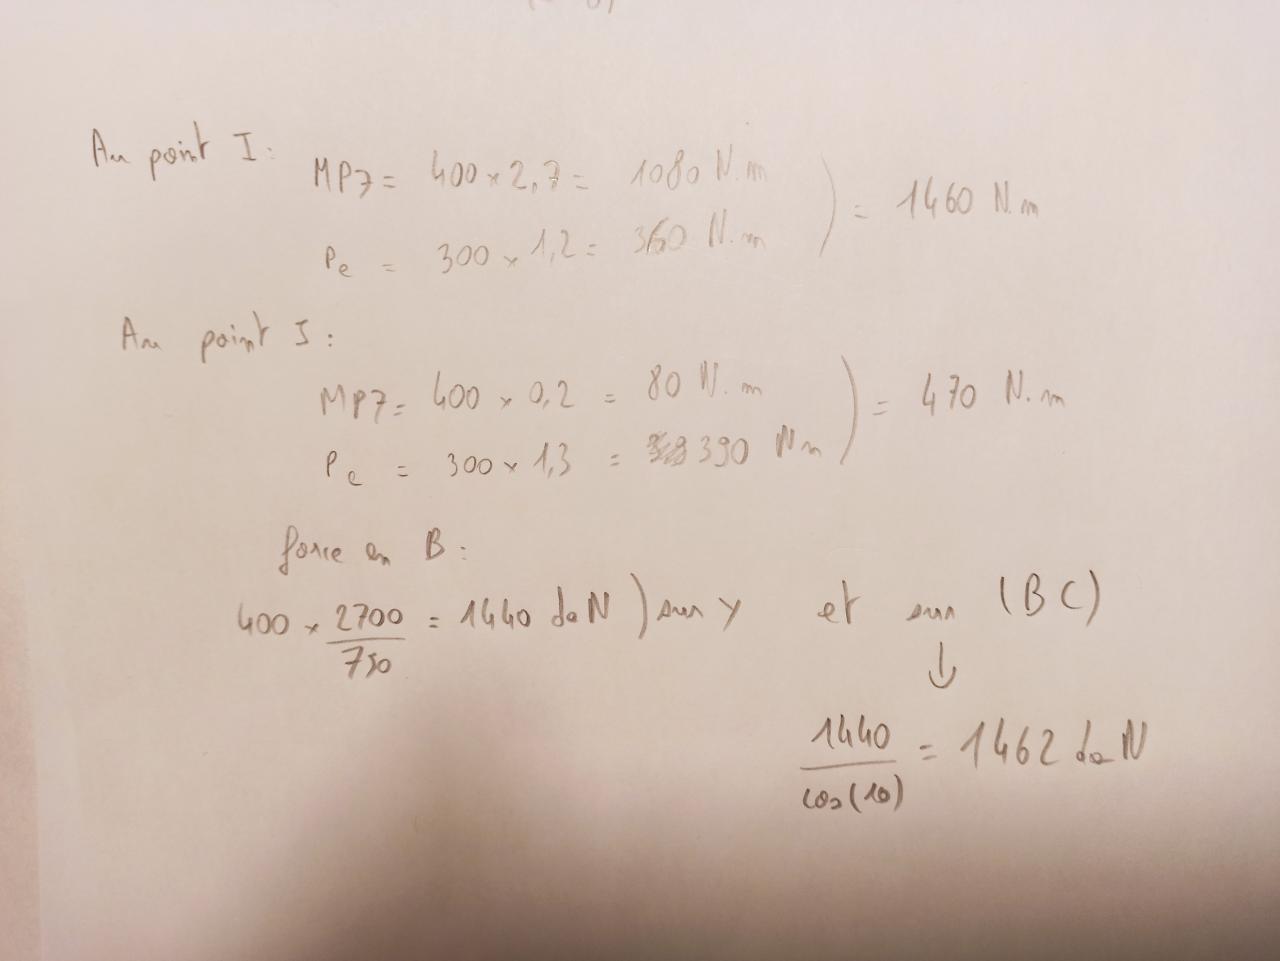 Au point I:
MP7 = 400 × 2,7 = 1080 N.m
Pe = 300 × 1,2 = 360 N.m ) = 1460 N.m
Au point J:
MP7 = 400 × 0,2 = 80 N.m
Pe = 300 × 1,3 = 390 Nm ) = 470 N.m
force en B:
400 × 2700/750 = 1440 daN ) sur y et sur (BC)
↓
1440/cos(10) = 1462 daN